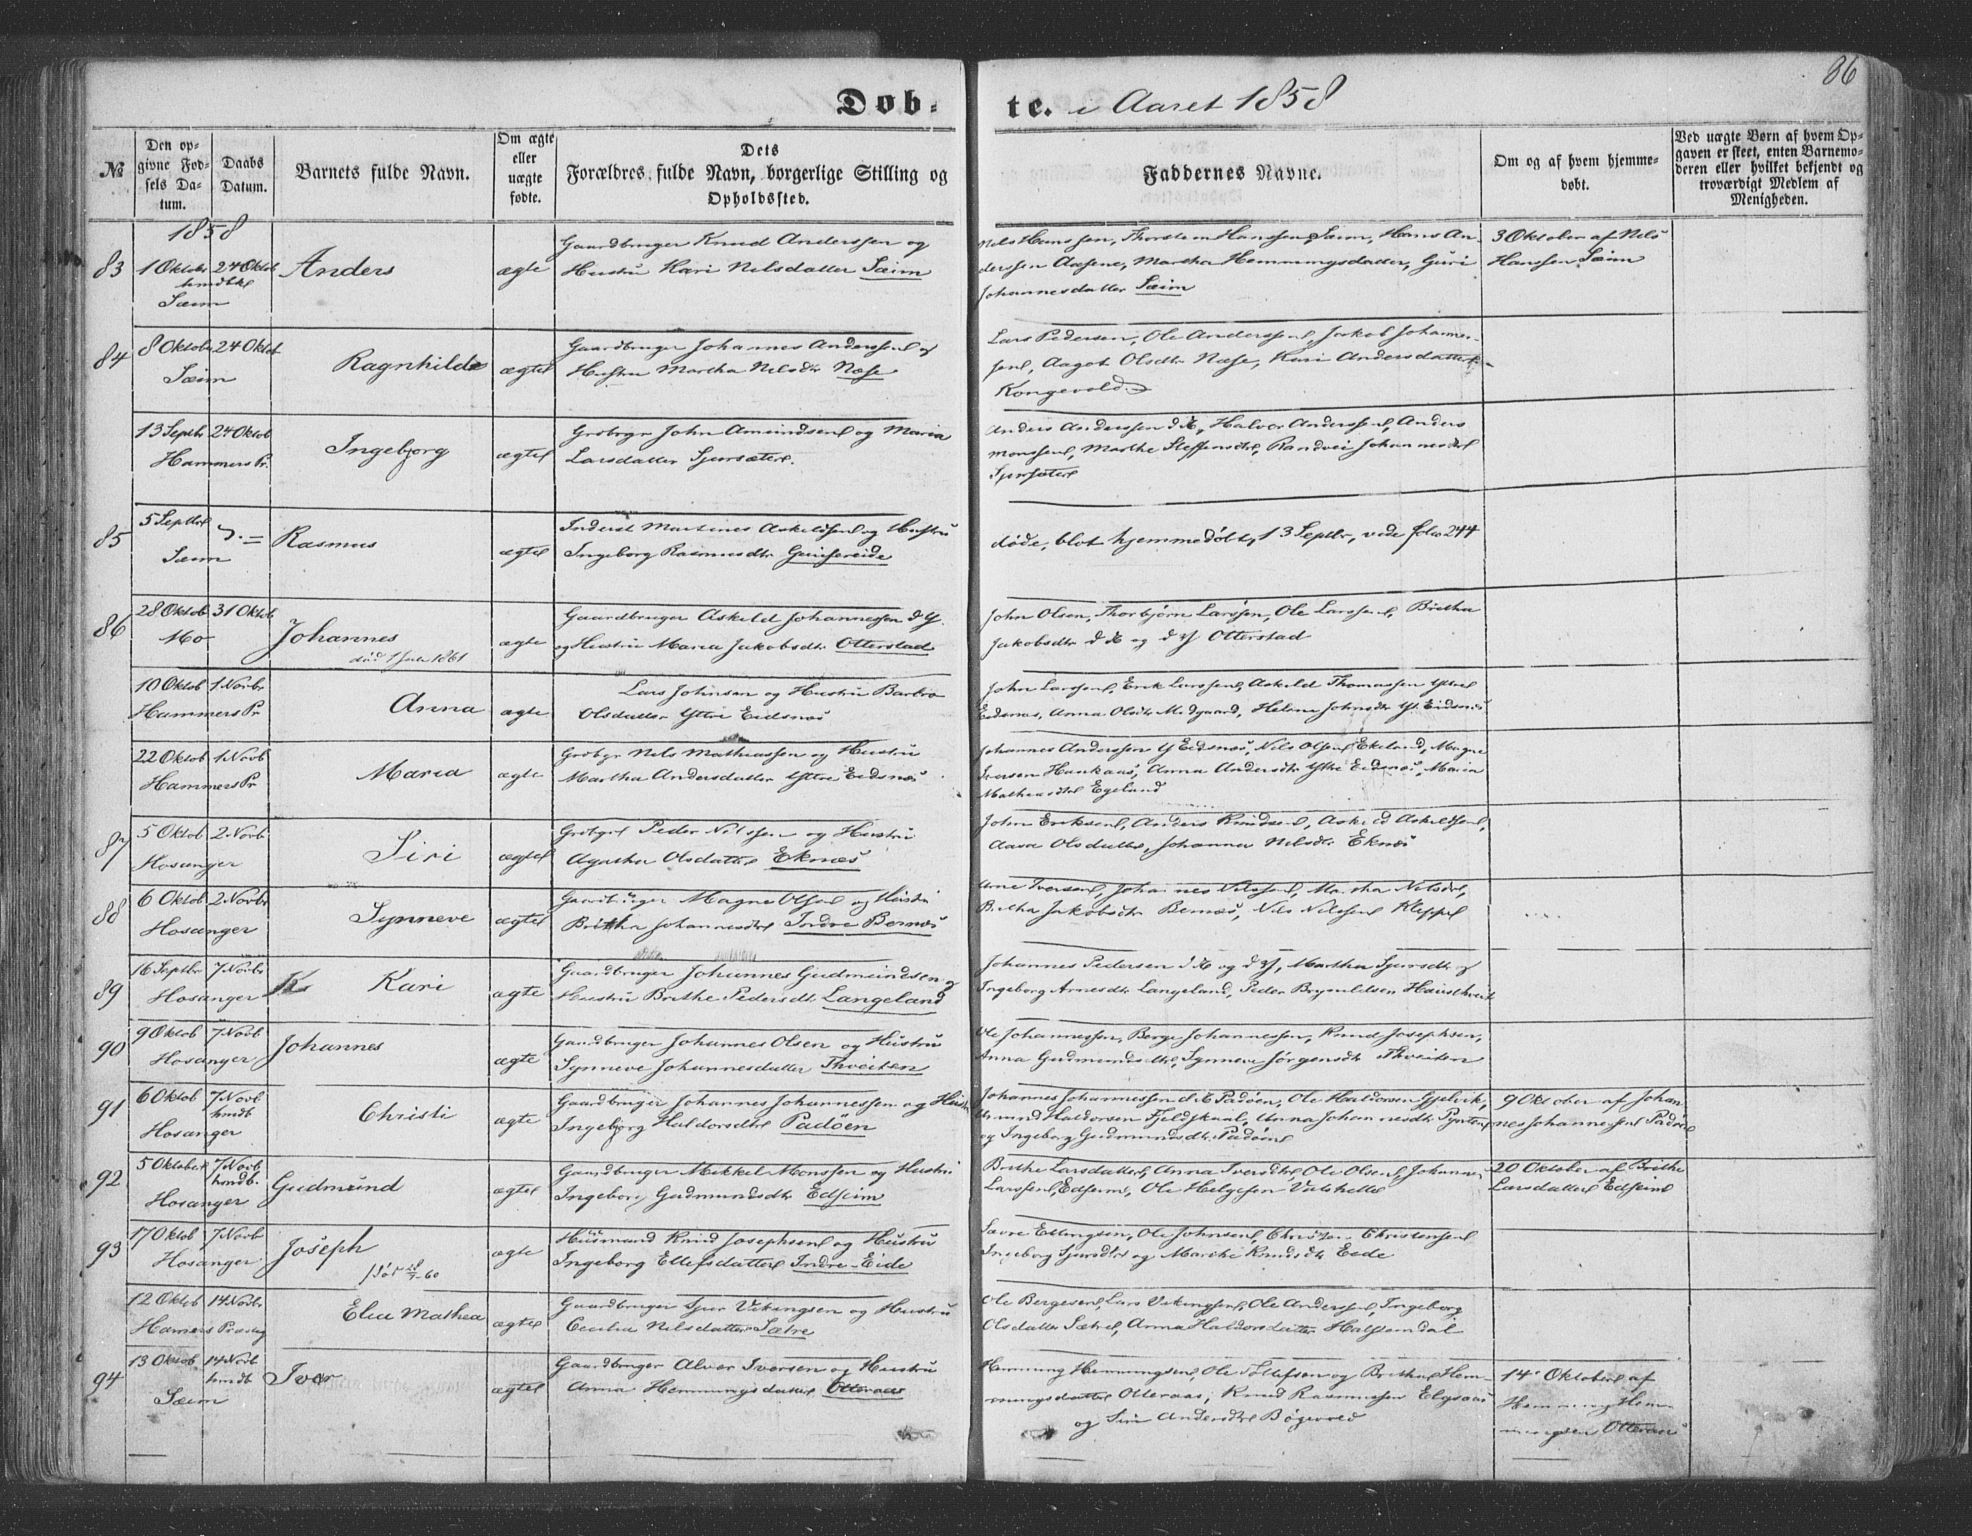 86
Døb-
te. i Aaret 1858
№
Den op-
givne Fød-
sels Da-
tum.
Daabs
Datum.
Barnets fulde Navn.
Om ægte
eller
uægte
fødte.
Dets
Forældres fulde Navn, borgerlige Stilling og
Opholdssted.
Faddernes Navne.
Om og af hvem hjemme-
døbt.
Ved uægte Børn af hvem Op-
gaven er skeet, enten Barnemo-
deren eller hvilket bekjendt og
troværdigt Medlem af
Menigheden.
1858
83 1 Oktobr 24 Oktob Anders ægte
hmdbt
Sæim
Gaardbruger Knud Anderssen og
Hustru Kari Nilsdatter Sæim
Nils Hanssen, Thorstein Hanssen Sæim, Hans An-
derssen Aasene, Martha Hemmingsdatter, Guri
Johannesdatter Sæim
3 Oktober af Nils
Hanssen Sæim
84 8 Oktobr 24 Oktob Ragnhilde ægte
Sæim
Gaardbruger Johannes Anderssen og
Hustru Martha Nilsdtr Næse
Lars Pedersen, Ole Anderssen, Jakob Johannes-
sen, Aagot Olsdtr Næse, Kari Andersdatter
Kongevold
13 Septbr 24 Oktob Ingebjorg ægte
Hammers Pr.
Grdbrgr John Amundsen og Maria
Larsdatter Sjursæter.
Anders Anderssen d. Æ, Halvor Anderssen, Anders
Monssen, Marthe Steffensdtr, Randvei Johannesdtr
Sjursæter
85 5 Septbr Rasmus ægte
Sæim
Inderst Martinus Askildsen og Hustru
Ingeborg Rasmusdtr
døde, blot hjemmedøbt, 13 Septbr, vide folio 244
86 28 Oktob 31 Oktob Johannes ægte
Mo
død 1 Juli 1861
Gaardbruger Askild Johannessen d. Y.
og Hustru Maria Jakobsdtr Otterstad
John Olsen, Thorbjørn Larssen, Ole Larssen, Britha
Jakobsdtr d. Æ og d. Y Otterstad
10 Oktob 1 Novbr Anna ægte
Hammers Pr
Lars Johnsen og Hustru Barbro
Olsdatter Yttre Eidsnæs
John Larssen, Erik Larssen, Askild Thomassen Yttre
Eidsnæs, Anna Olsdtr Midgaard, Helene Johnsdtr Yt. Eidsnæs
22 Oktob 1 Novb Maria ægte
Hammers Pr
Grdbgr Nils Mathiassen og Hustru
Martha Andersdatter Yttre Eidsnæs
Johannes Anderssen Y Eidsnæs, Nils Olsen Ekeland, Magne
Iversen Haukaas, Anna Andersdtr Yttre Eidsnæs, Maria
Mathiasdtr Egeland
87 5 Oktob 2 Novb Siri ægte
Hosanger
Grdbgr Peder Nilssen og Hustru
Agatha Olsdatter Eknæs
John Eriksen, Anders Knudsen, Askild Askildsen,
Aasa Olsdatter, Johanna Nilsdtr Eknæs
88 6 Oktob 2 Novbr Synneve ægte
Hosanger
Gaardbruger Magne Olsen og Hustru
Britha Johannesdtr Indre Bernæs
Arne Iversen, Johannes Nilssen, Martha Nilsdtr,
Britha Jakobsdtr Bernæs, Nils Nilssen Kleppe
89 16 Septbr 7 Novbr Kari ægte
Hosanger
Gaardbruger Johannes Gudmundsen og
Hustru Brithe Pedersdtr Langeland
Johannes Pedersen d. Æ og d. Y, Martha Sjursdtr og
Ingeborg Arnesdtr Langeland, Peder Brynildsen
90 9 Oktob 7 Novb Johannes ægte
Hosanger
Gaardbruger Johannes Olsen og Hustru
Synneve Johannesdatter Thveiten
Ole Johannessen, Berge Johannessen, Knud Josephsen,
Anna Gudmundsdtr, Synneve Jørgensdtr Thveiten
91 6 Oktob 7 Novb Christi ægte
hmdb
Hosanger
Gaardbruger Johannes Johannessen og Hustru
Ingeborg Haldorsdtr Padøen
Johannes Johannessen d. E Padøen, Ole Haldorsen Gjelvik,
Amund Haldorsen Fjeldskaal, Anna Johannesdtr
og Ingeborg Gudmundsdtr Padøen
9 Oktober af Johan-
nes Johannessen Padøen
92 5 Oktober 7 Novb Gudmund ægte
hmdb.
Hosanger
Gaardbruger Mikkel Monssen og Hustru
Ingeborg Gudmundsdtr Edseim
Brithe Larsdatter, Anna Iversdtr, Ole Olsen, Johannes
Larssen, Edseim, Ole Helgesen
20 Oktober af Brithe
Larsdatter Edseim
93 17 Oktob 7 Novb Joseph ægte
Hosanger
Husmand Knud Josephsen og Hustru
Ingeborg Ellefsdatter Indre-Eide
Ole Johnsen, Christensen
Ingeborg Sjursdtr og Marthe Knudsdtr Eide
12 Oktob 14 Novbr Elen Mathea ægte
Hamers Præstg
Gaardbruger Sjur Vikingsen og Hustru
Cecilia Nilsdatter Sætre
Ole Bergesen, Lars Vikingsen, Ole Anderssen, Ingeborg
Olsdatter Sætre, Anna Haldorsdatter Halstendal
94 13 Oktob 14 Novb Iver ægte
hmdb
Sæim
Gaardbruger Alver Iversen og Hustru
Anna Hemmingsdatter Otteraas
Hemming Hemmingsen, Ole og Britha Hem-
mingsdatter Otteraas, Knud Rasmussen
og Siri Andersdtr Bøgevold
14 Oktober af
Hemming Hem-
mingsen Otteraas